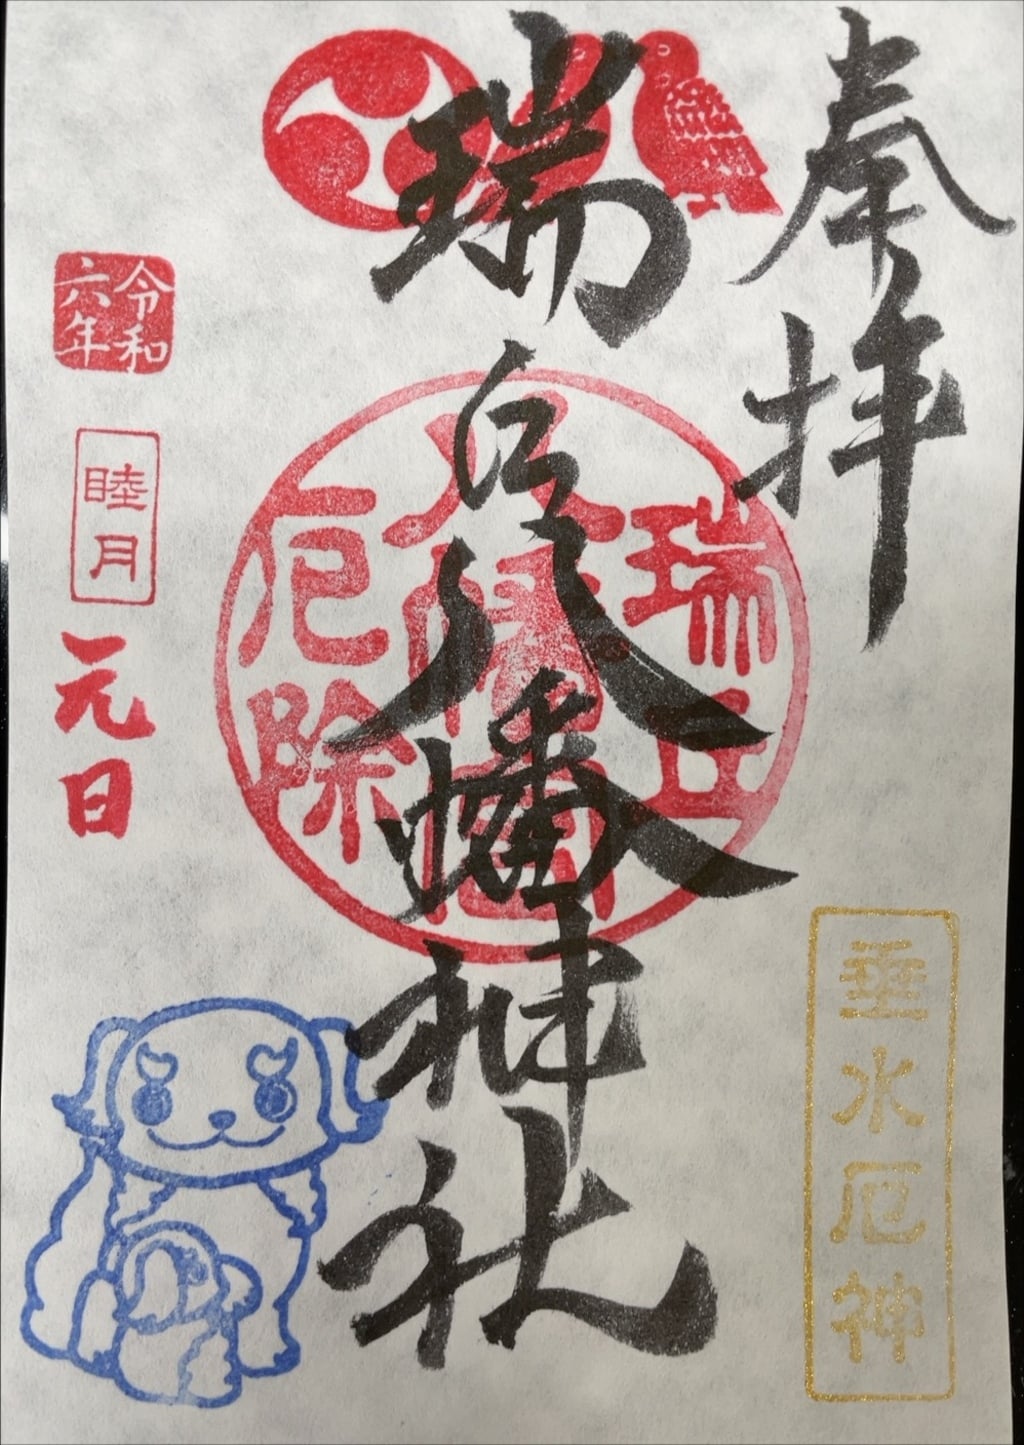 奉拝
垂水厄神
瑞丘八幡神社
瑞丘
八幡宮
厄除
令和
六年
睦月
元日